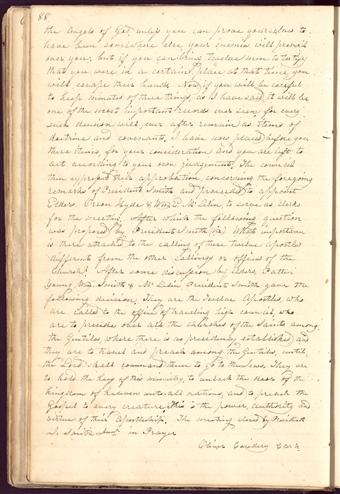 88
the Angels of God, unless you can prove yourselves to
have been somewhere else, your enemies will prevail
over you; but if you can bring twelve men to testify
that you were in a certain place at that time you
will escape their hands. Now if you will be careful
to keep minutes of these things, as I have said, it will be
one of the most important records ever seen; for every
such decision will ever after remain as items of
doctrine and covenants. I have now placed before you
these items for your consideration and you are left to
act according to your own judgments. The council
then expressed their approbation concerning the foregoing
remarks of President Smith and proceeded to appoint
Elders, Orson Hyde & Wm E. McLelin to serve as clerks
for this meeting. After which the following question
was proposed by President Smith, viz. What importance
is there attached to the calling of these twelve Apostles
different from the other callings or offices of the
Church? After some discussion by Elders Patten,
Young, Wm. Smith & McLelin President Smith gave the
following decision. They are the Twelve Apostles, who
are called to the office of travelling high council, who
are to preside over all the churches of the Saints among
the Gentiles, where there is no presidency established, and
they are to travel and preach among the Gentiles, until
the Lord shall command them to go to the Jews. They are
to hold the keys of this ministry, to unlock the door of the
kingdom of heaven unto all nations, and to preach the
Gospel to every creature. This is the power, authority and
virtue of their Apostleship. The meeting closed by President
J. Smith in Prayer
Oliver Cowdery Clerk